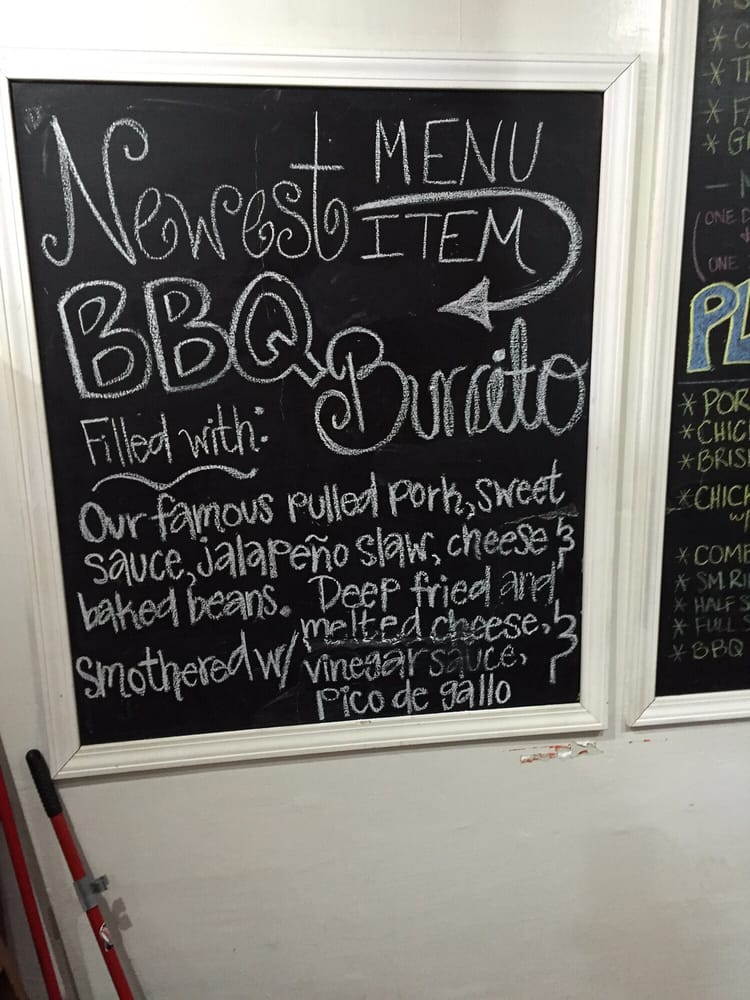 Newest MENU
ITEM
BBQ Burrito
Filled with:
Our famous pulled pork, sweet
sauce, jalapeño slaw, cheese &
baked beans. Deep fried and
smothered w/ melted cheese,
vinegar sauce, &
pico de gallo
ONE
ONE
* POR
* CHIC
* BRIS
* CHIC
w/
* COMB
* SM. R
* HALF S
* FULL S
* BBQ